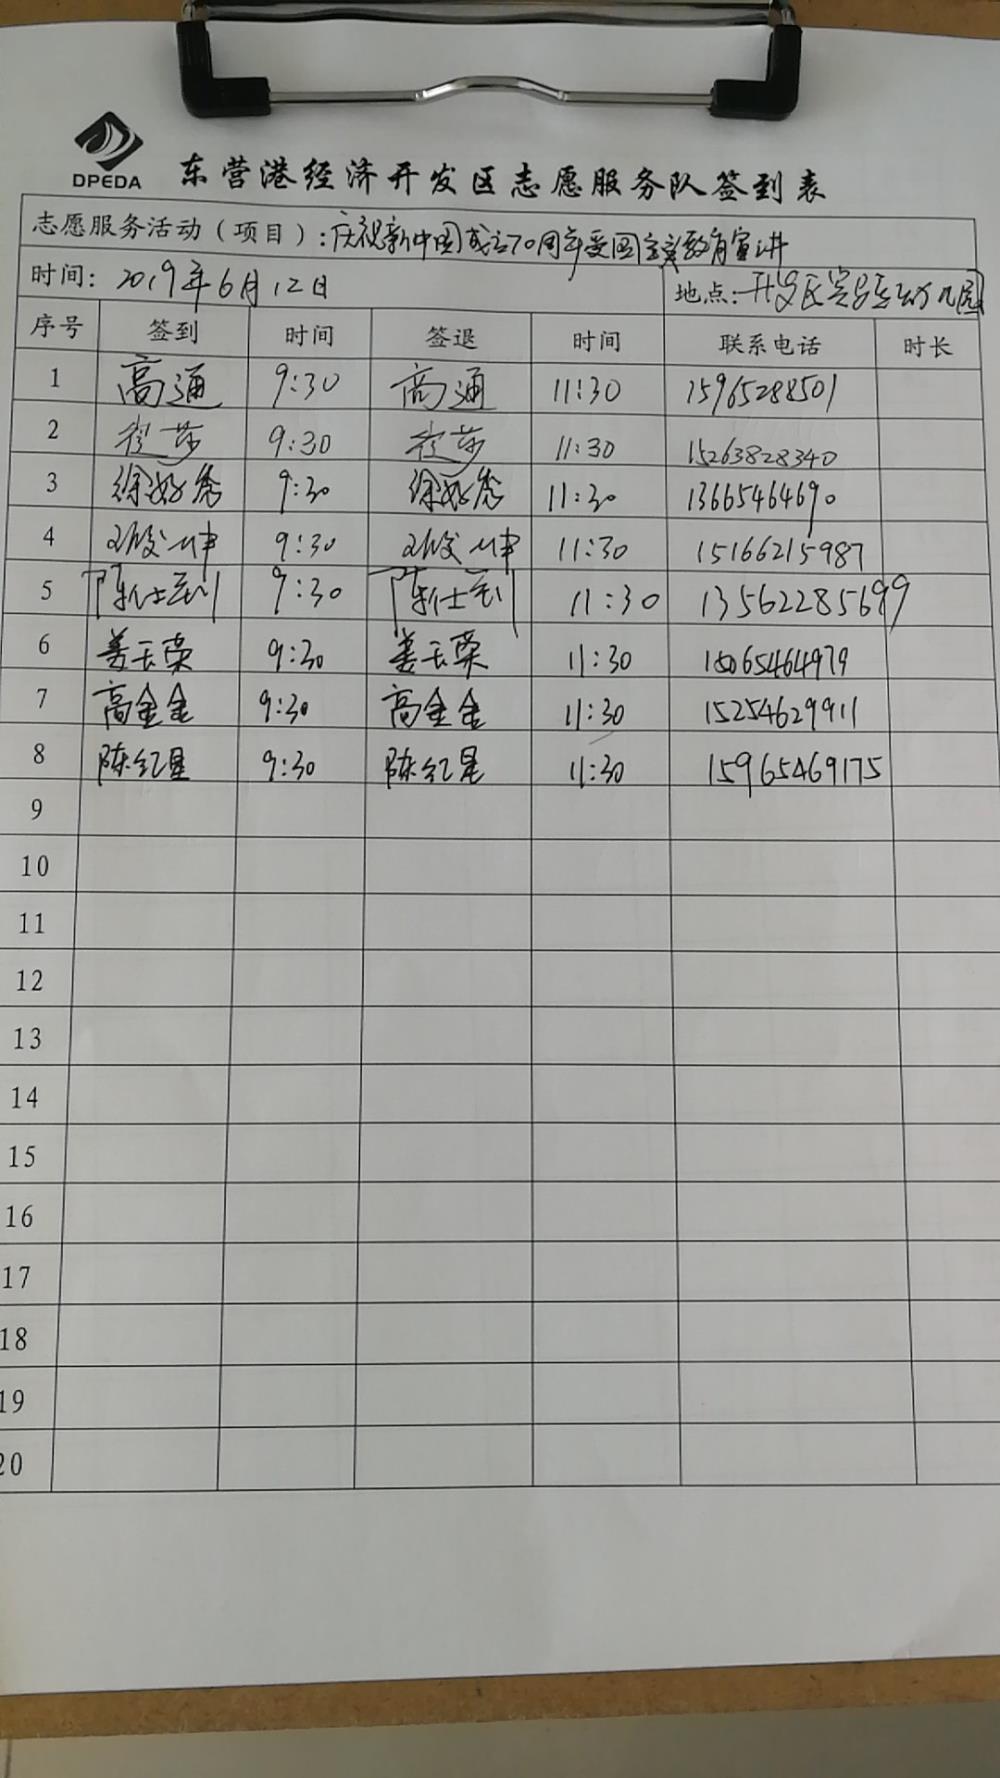 DPEDA
东营港经济开发区志愿服务队签到表
志愿服务活动（项目）：庆祝新中国成立70周年爱国主义教育宣讲
时间：2019年6月12日 地点：开发区 幼儿园
序号 签到 时间 签退 时间 联系电话 时长
1 高通 9:30 高通 11:30 15965288501
2 莎 9:30 莎 11:30 15263828340
3 徐好秀 9:30 徐好秀 11:30 13665464690
4 9:30 11:30 15166215987
5 陈仕 9:30 陈仕 11:30 13562285699
6 姜玉荣 9:30 姜玉荣 11:30 15065464979
7 高金金 9:30 高金金 11:30 15254629911
8 陈红星 9:30 陈红星 11:30 15965469175
9
10
11
12
13
14
15
16
17
18
19
20